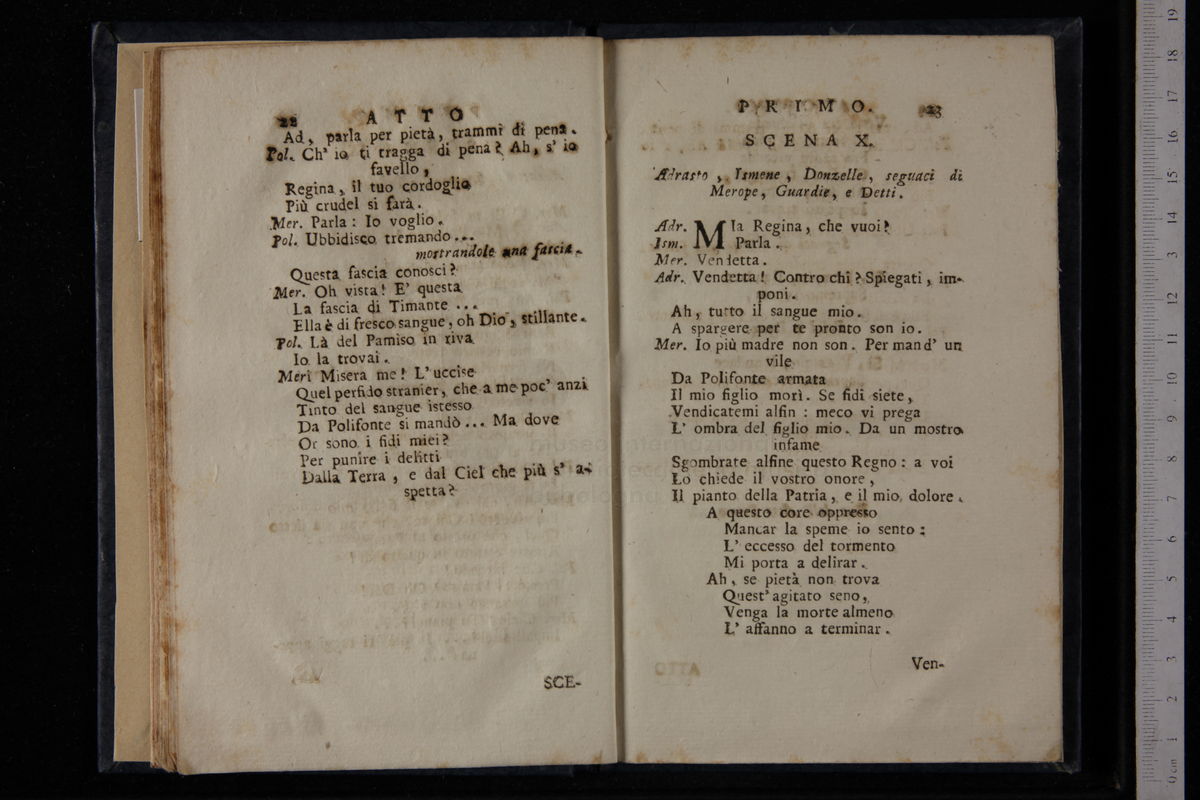 22 ATTO
Ad, parla per pietà, trammi di pena.
Pol. Ch' io ti tragga di pena? Ah, s' io
favello,
Regina, il tuo cordoglio
Più crudel si farà.
Mer. Parla: Io voglio.
Pol. Ubbidisco tremando...
mostrandole una fascia.
Questa fascia conosci?
Mer. Oh vista! E' questa
La fascia di Timante ...
Ella è di fresco sangue, oh Dio, stillante.
Pol. Là del Pamiso in riva
Io la trovai.
Meri Misera me! L' uccise
Quel perfido stranier, che a me poc' anzi
Tinto del sangue istesso
Da Polifonte si mandò... Ma dove
Or sono i fidi miei?
Per punire i delitti
Dalla Terra, e dal Ciel che più s' a-
spetta?
SCE-
PRIMO. 23
SCENA X.
Adrasto, Ismene, Donzelle, seguaci di
Merope, Guardie, e Detti.
Adr. MIa Regina, che vuoi?
Ism. Parla.
Mer. Vendetta.
Adr. Vendetta! Contro chi? Spiegati, im-
poni.
Ah, tutto il sangue mio.
A spargere per te pronto son io.
Mer. Io più madre non son. Per man d' un
vile
Da Polifonte armata
Il mio figlio morì. Se fidi siete,
Vendicatemi alfin: meco vi prega
L' ombra del figlio mio. Da un mostro
infame
Sgombrate alfine questo Regno: a voi
Lo chiede il vostro onore,
Il pianto della Patria, e il mio dolore.
A questo core oppresso
Mancar la speme io sento:
L' eccesso del tormento
Mi porta a delirar.
Ah, se pietà non trova
Quest' agitato seno,
Venga la morte almeno
L' affanno a terminar.
Ven-